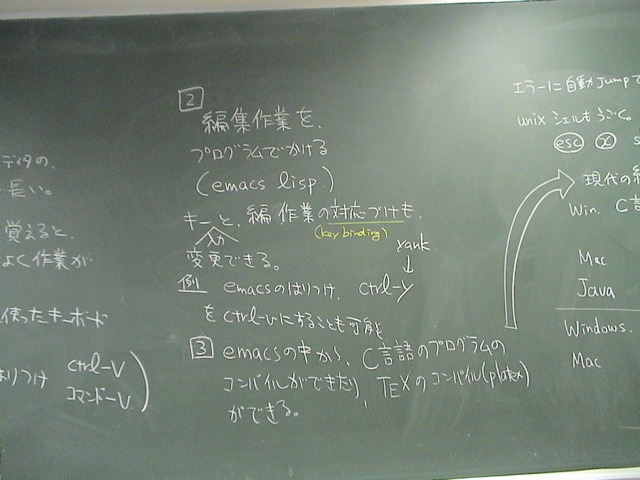 ディタの、
長い。
覚えると、
よく作業が
使ったキーボード
はりつけ ctrl-V
コマンド-V
2
編集作業を、
プログラムでかける
(emacs lisp)
キーと、編 作業の対応づけも、
入力
(key binding)
変更できる。
yank
↓
例 emacsのはりつけ、ctrl-y
をctrl-vにすることも可能
3 emacsの中から、C言語のプログラムの
コンパイルができたり、TEXのコンパイル(platex)
ができる。
エラーに自動Jumpで
unix シェルもうごく。
esc x s
現代の
Win. C言
Mac
Java
Windows.
Mac